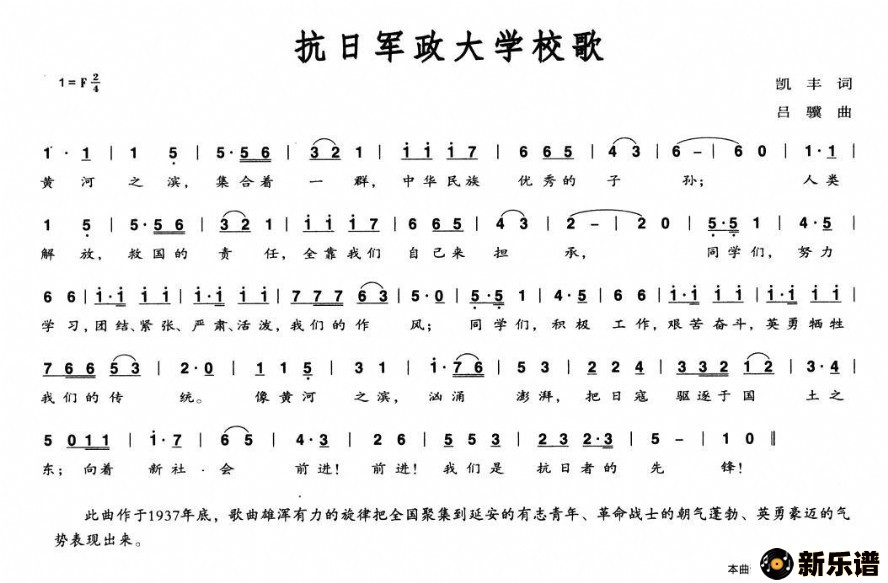 抗日军政大学校歌
1=F 2/4
凯丰词
吕骥曲
1·1 | 1 5 | 5·5 5 6 | 3 2 1 | i i i 7 | 6 6 5 | 4 3 | 6 – | 6 0 | 1·1 |
黄河之滨，集合着一群，中华民族优秀的子孙；人类
1 5 | 5·5 5 6 | 3 2 1 | i i i 7 | 6 6 5 | 4 3 | 2 – | 2 0 | 5·5 1 | 4·5 |
解放，救国的责任，全靠我们自己来担承，同学们，努力
6 6 | i·i i i | i·i i i | 7 7 7 6 3 | 5·0 | 5·5 1 | 4·5 | 6 6 | i·i i i | i·i i i |
学习，团结、紧张、严肃、活泼，我们的作风；同学们，积极工作，艰苦奋斗，英勇牺牲
7 6 6 5 3 | 2·0 | 1 1 5 | 3 1 | i·7 6 | 5 3 | 2 2 4 | 3 3 2 1 2 | 3·4 |
我们的传统。像黄河之滨，汹涌澎湃，把日寇驱逐于国土之
5 0 1 1 | i·7 | 6 5 | 4·3 | 2 6 | 5 5 3 | 2 3 2·3 | 5 – | 1 0 ‖
东；向着新社·会前进！前进！我们是抗日者的先锋！
此曲作于1937年底，歌曲雄浑有力的旋律把全国聚集到延安的有志青年、革命战士的朝气蓬勃、英勇豪迈的气
势表现出来。
本曲 新乐谱